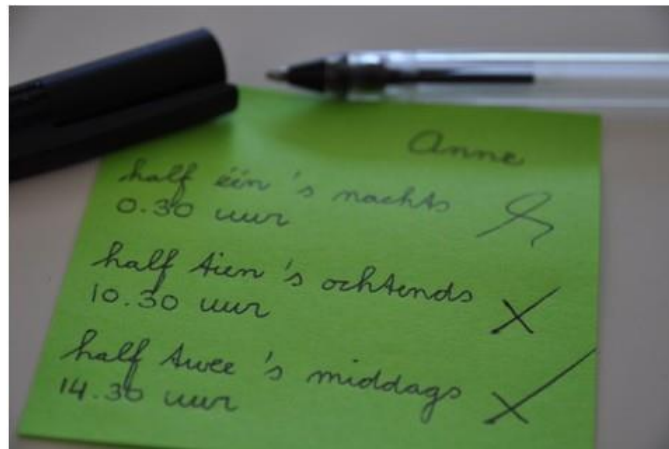 Anne
half één 's nachts
0.30 uur
half tien 's ochtends
10.30 uur
half twee 's middags
14.30 uur